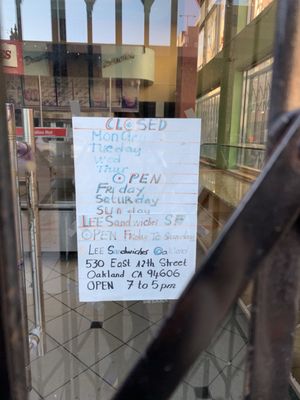 CLOSED
Monday
Tuesday
Wed
Thur
OPEN
Friday
Saturday
Sunday
LEE Sandwiches SF
OPEN Friday To Sunday
LEE Sandwiches Oakland
530 East 12th Street
Oakland CA 94606
OPEN 7 to 5 pm